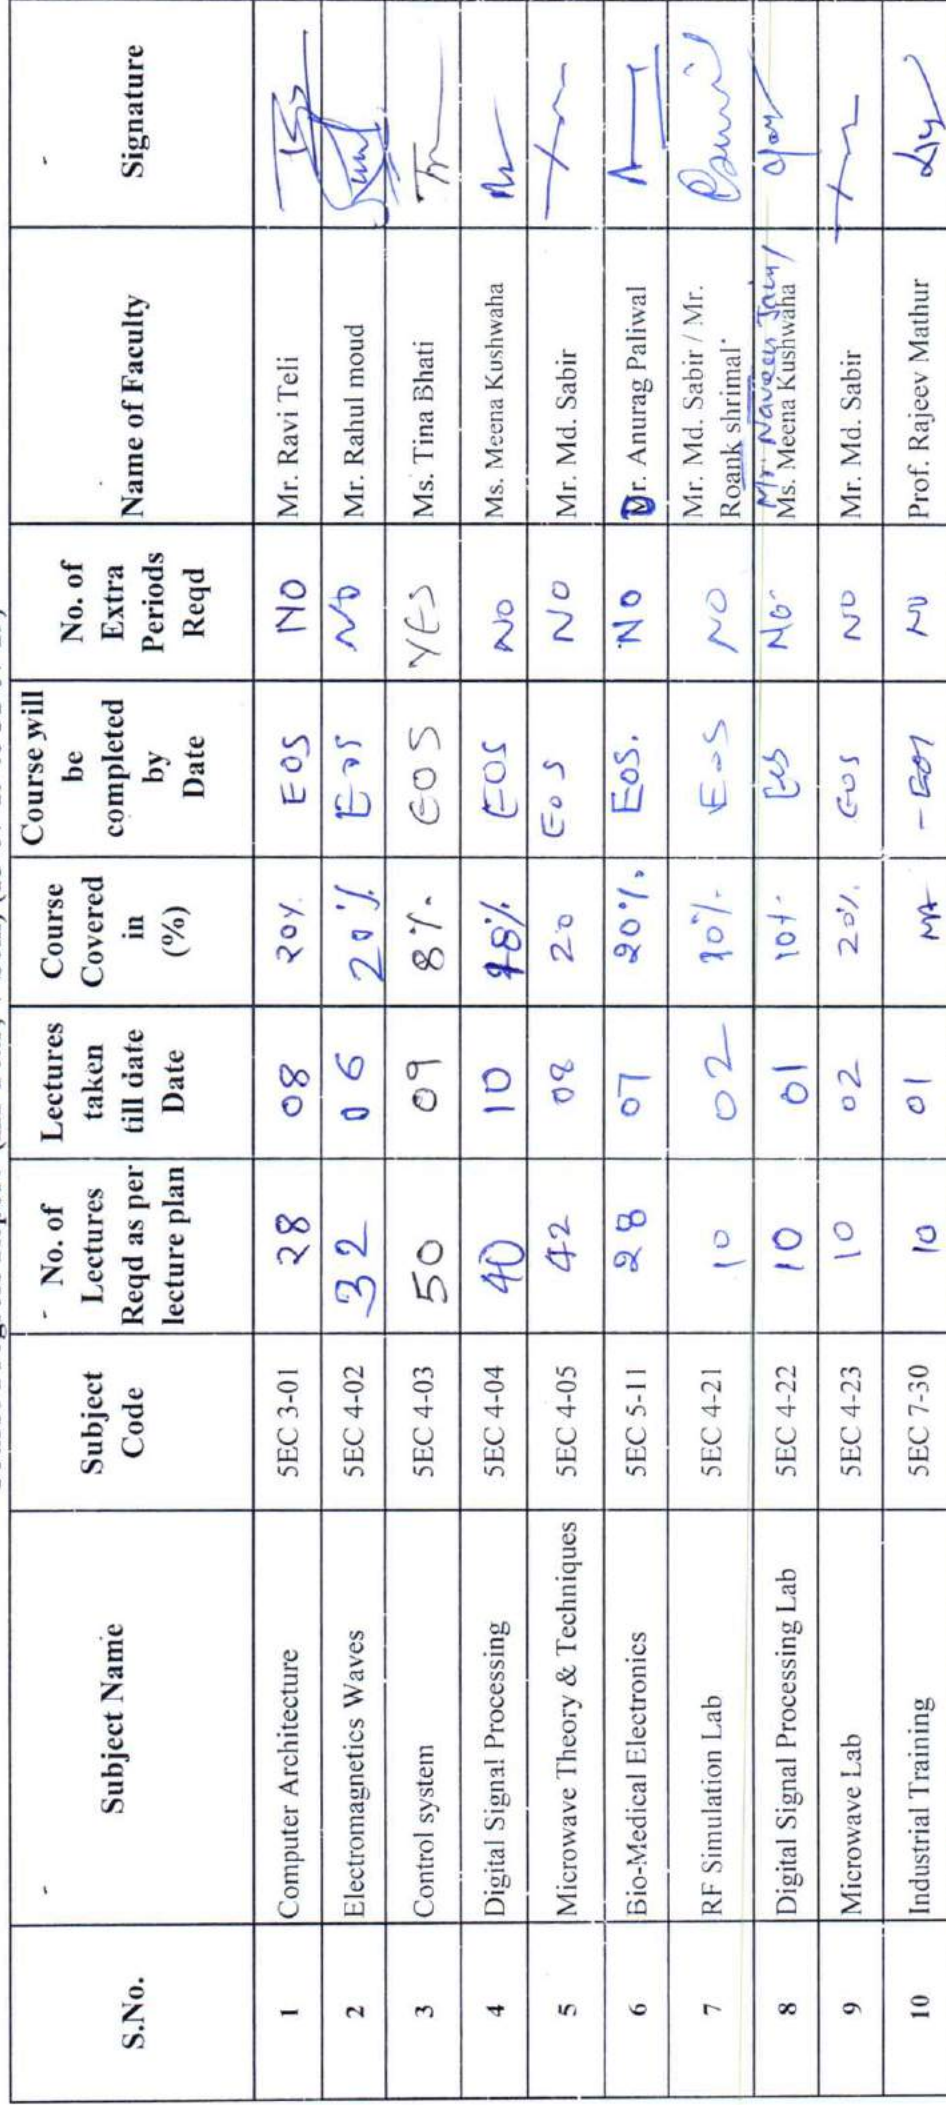 S.No. Subject Name Subject Code No. of Lectures Reqd as per lecture plan Lectures taken till date Date Course Covered in (%) Course will be completed by Date No. of Extra Periods Reqd Name of Faculty Signature
1 Computer Architecture 5EC 3-01 28 08 20% EOS NO Mr. Ravi Teli
2 Electromagnetics Waves 5EC 4-02 32 06 20% EOS NO Mr. Rahul moud
3 Control system 5EC 4-03 50 09 8%. EOS YES Ms. Tina Bhati
4 Digital Signal Processing 5EC 4-04 40 10 18% EOS NO Ms. Meena Kushwaha
5 Microwave Theory & Techniques 5EC 4-05 42 08 20 EOS NO Mr. Md. Sabir
6 Bio-Medical Electronics 5EC 5-11 28 07 20%. EOS. No Dr. Anurag Paliwal
7 RF Simulation Lab 5EC 4-21 10 02 10%. EOS NO Mr. Md. Sabir / Mr. Roank shrimal
8 Digital Signal Processing Lab 5EC 4-22 10 01 10%. NO Mr. Naveen Jain / Ms. Meena Kushwaha
9 Microwave Lab 5EC 4-23 10 02 20%. EOS NO Mr. Md. Sabir
10 Industrial Training 5EC 7-30 10 01 NA EOS NO Prof. Rajeev Mathur